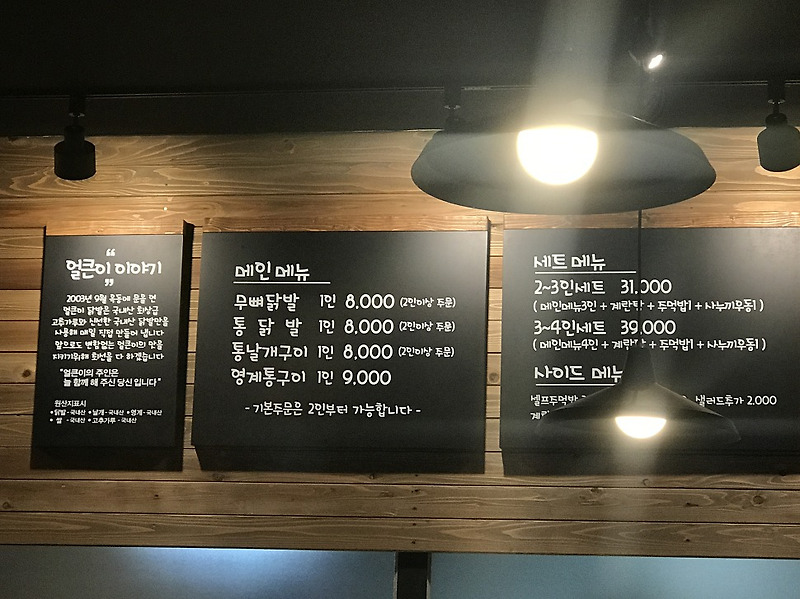 “
얼큰이 이야기
”
2003년 9월 목동에 문을 연
얼큰이 닭발은 국내산 최상급
고추가루와 신선한 국내산 닭발만을
사용해 매일 직접 만들어 냅니다
앞으로도 변함없는 얼큰이의 맛을
지키기위해 최선을 다 하겠습니다
"얼큰이의 주인은
늘 함께 해 주신 당신 입니다"
원산지표시
•닭발-국내산 •날개-국내산 •영계-국내산
•쌀 -국내산 •고추가루-국내산
메인 메뉴
무뼈닭발 1인 8,000 (2인이상 주문)
통 닭 발 1인 8,000 (2인이상 주문)
통날개구이 1인 8,000 (2인이상 주문)
영계통구이 1인 9,000
- 기본주문은 2인부터 가능합니다 -
세트 메뉴
2~3인세트 31,000
( 메인메뉴3인 + 계란탕 + 주먹밥1 + 사누끼우동1 )
3~4인세트 39,000
( 메인메뉴4인 + 계란탕 + 주먹밥1 + 사누끼우동1 )
사이드 메뉴
셀프주먹밥 샐러드추가 2,000